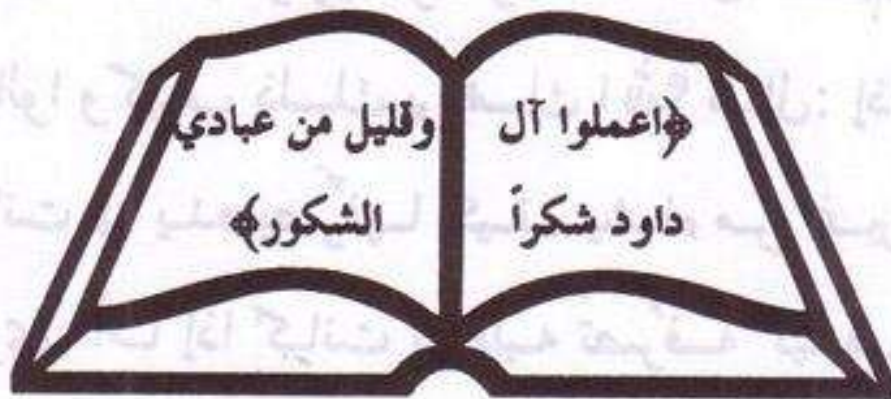 ﴿اعملوا آل
داود شكراً
وقليل من عبادي
الشكور﴾